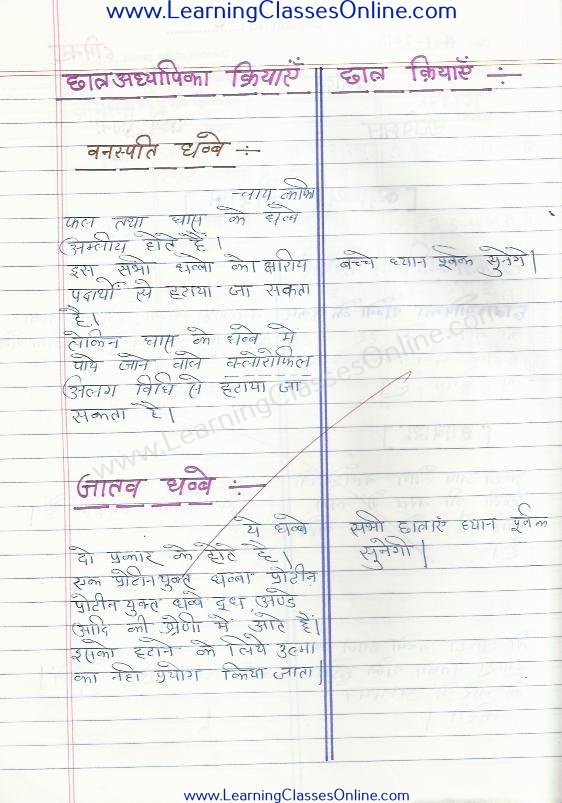 www.LearningClassesOnline.com
छात्रअध्यापिका क्रियाएँ छात्र क्रियाएँ ÷
वनस्पति धब्बे ÷
चाय, कॉफी
फल तथा घास के धब्बे
अम्लीय होते हैं।
इस सभी धब्बो को क्षारिय बच्चे ध्यान पूर्वक सुनेंगे।
पदार्थो से हटाया जा सकता
है।
लेकिन घास के धब्बे मे
पाये जाने वाले क्लोरोफिल
अलग विधि से हटाया जा
सकता है।
www.LearningClassesOnline.com
जातव धब्बे ÷
ये धब्बे सभी छात्राएं ध्यान पूर्वक
दो प्रकार के होते है। सुनेगी।
एक प्रोटीनयुक्त धब्बा प्रोटीन
प्रोटीनयुक्त धब्बे दूध अण्डे
आदि की श्रेणी मे आते हैं।
इसको हटाने के लिये उत्मा
का नही प्रयोग किया जाता।
www.LearningClassesOnline.com